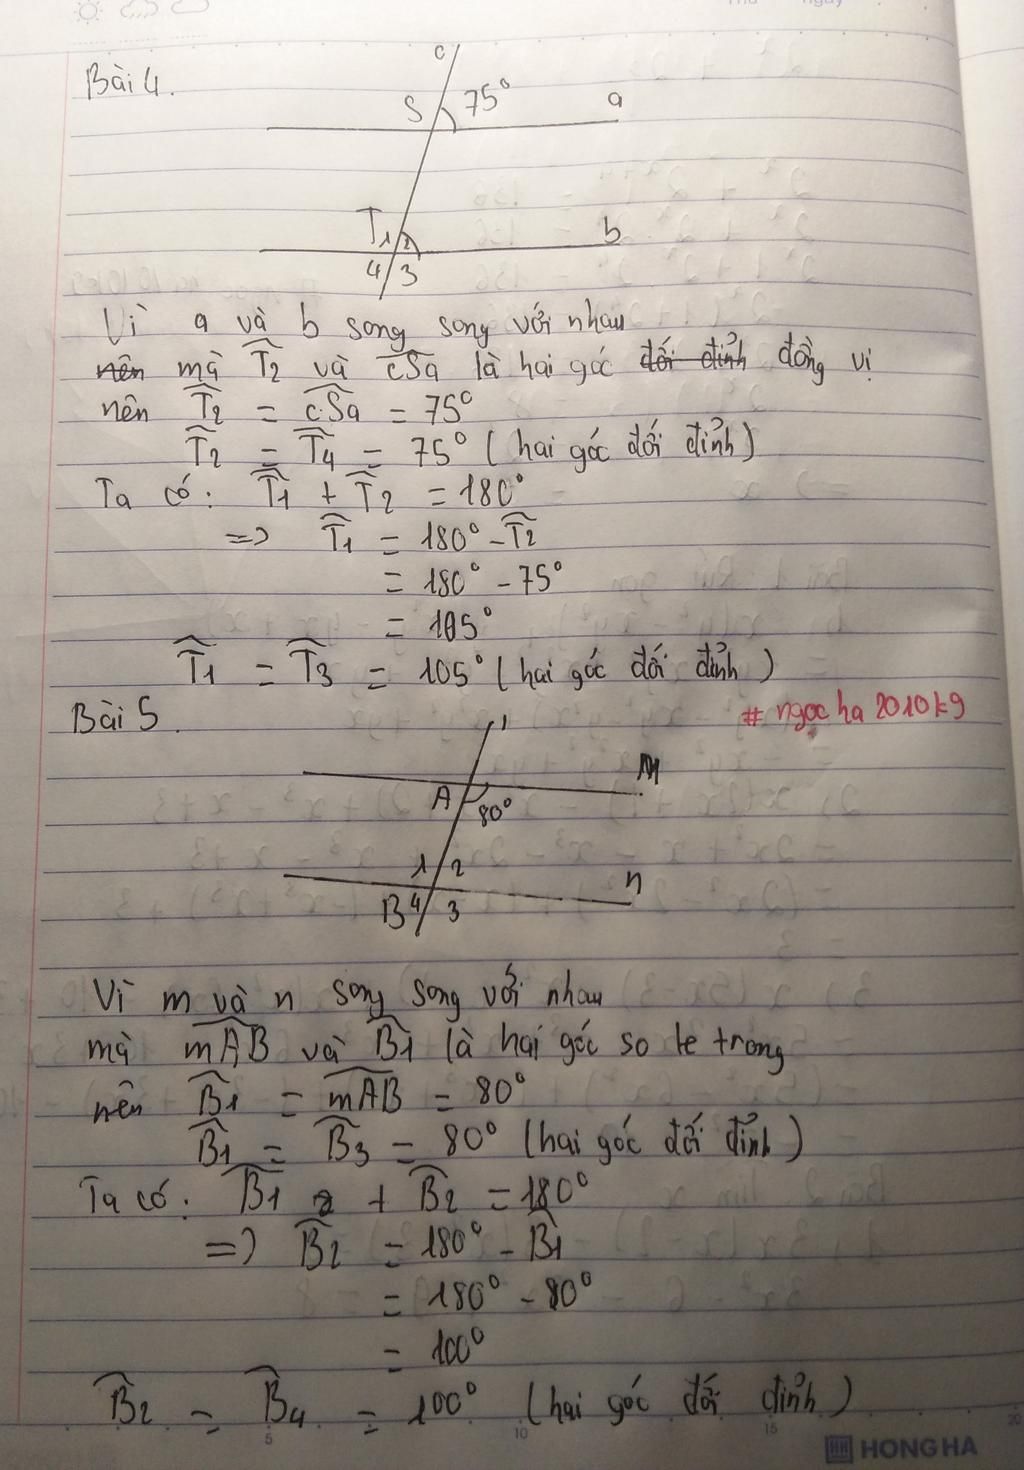 Bài 4.
c
S 75° a
T1 2 b
4 3
Vì a và b song song với nhau
nên mà T̂2 và cSa là hai góc đối đỉnh đồng vị
nên T̂2 = c.Sa = 75°
T̂2 = T̂4 = 75° (hai góc đối đỉnh)
Ta có: T̂1 + T̂2 = 180°
=> T̂1 = 180° - T̂2
= 180° - 75°
= 105°
T̂1 = T̂3 = 105° (hai góc đối đỉnh)
Bài 5. # ngocha2010kg
A 80° M
1 2 n
B 4 3
Vì m và n song song với nhau
mà mAB và B̂1 là hai góc so le trong
nên B̂1 = mAB = 80°
B̂1 = B̂3 = 80° (hai góc đối đỉnh)
Ta có: B̂1 + B̂2 = 180°
=> B̂2 = 180° - B̂1
= 180° - 80°
= 100°
B̂2 = B̂4 = 100° (hai góc đối đỉnh)
5 10 15 20
HONG HA